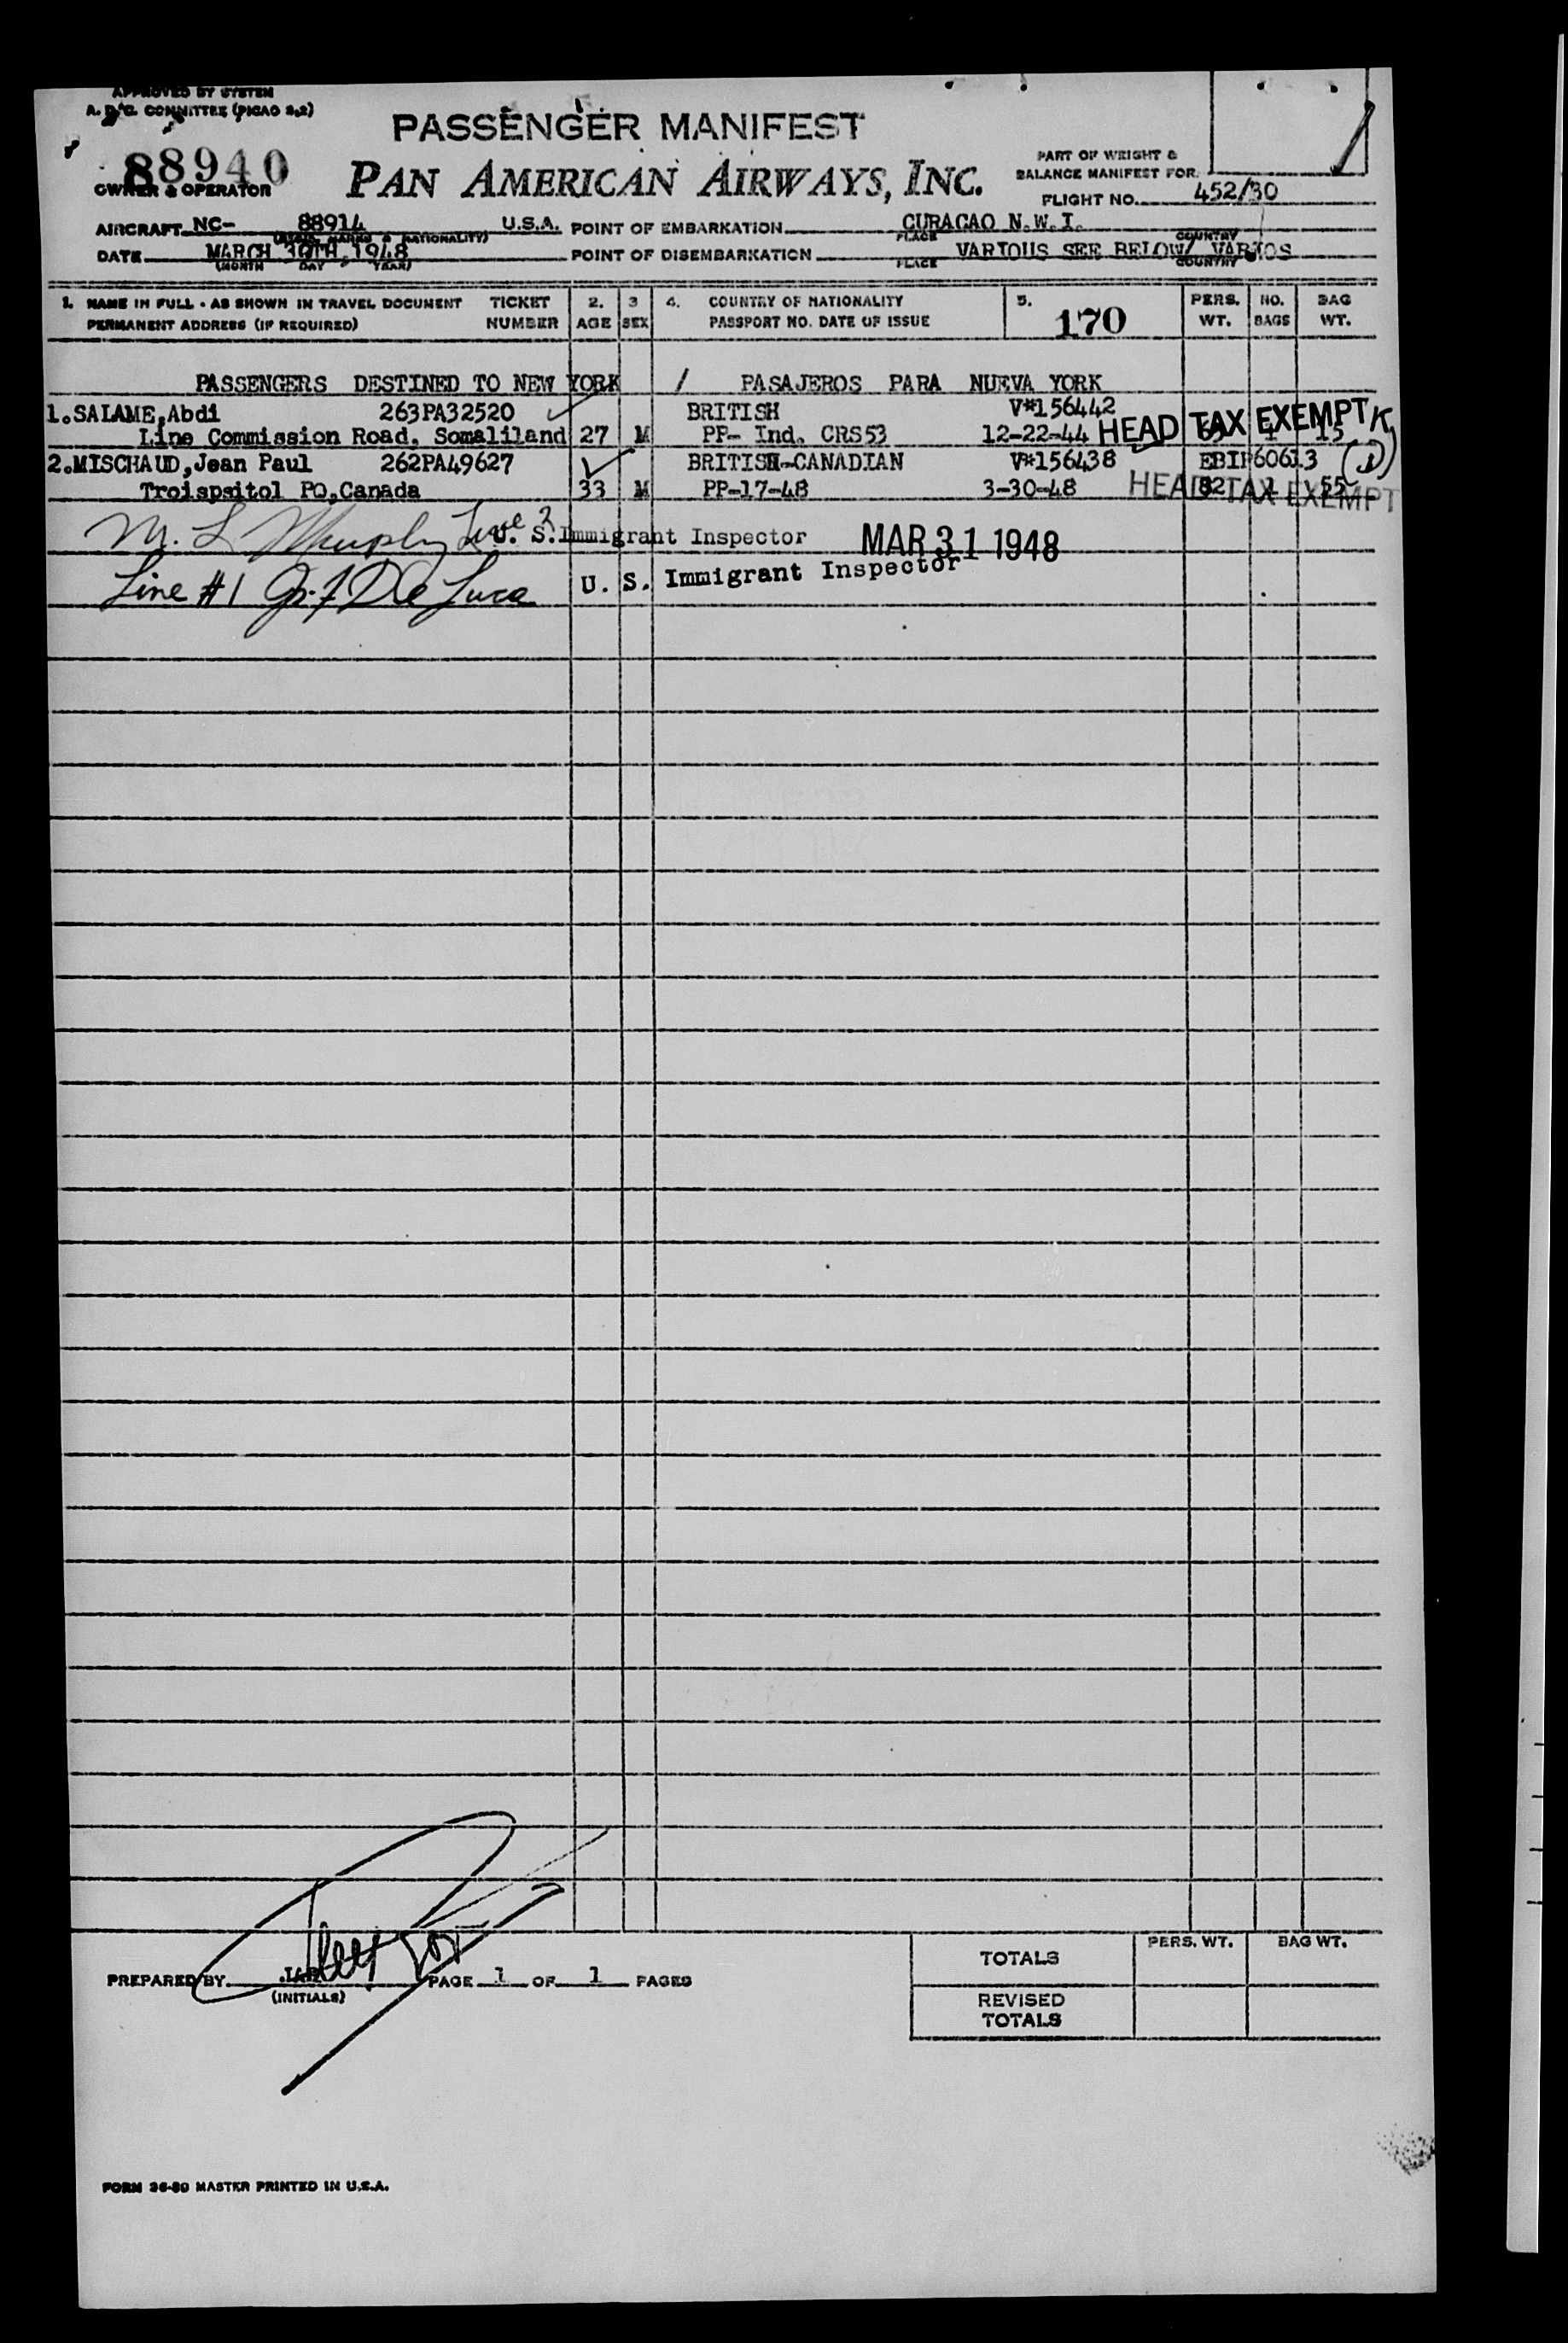 APPROVED BY SYSTEM
A. D. C. COMMITTEE (PICAO 2.2)
PASSENGER MANIFEST
88940
OWNER & OPERATOR
PAN AMERICAN AIRWAYS, INC.
PART OF WEIGHT &
BALANCE MANIFEST FOR
FLIGHT NO. 452/30
AIRCRAFT NC- 88914 U.S.A. POINT OF EMBARKATION CURACAO N.W.I.
MARKS & NATIONALITY) PLACE COUNTRY
DATE MARCH 30TH, 1948 POINT OF DISEMBARKATION VARIOUS SEE BELOW/ VARIOS
(MONTH DAY YEAR) PLACE COUNTRY
1. NAME IN FULL - AS SHOWN IN TRAVEL DOCUMENT TICKET 2. 3 4. COUNTRY OF NATIONALITY 5. 170 PERS. NO. BAG
PERMANENT ADDRESS (IF REQUIRED) NUMBER AGE SEX PASSPORT NO. DATE OF ISSUE WT. BAGS WT.
PASSENGERS DESTINED TO NEW YORK / PASAJEROS PARA NUEVA YORK
1.SALAME,Abdi 263PA32520 BRITISH V#156442
Line Commission Road, Somaliland 27 M PP- Ind. CRS53 12-22-44 HEAD TAX EXEMPT 1 15
2.MISCHAUD,Jean Paul 262PA49627 BRITISH-CANADIAN V#156438
Troispsitol PO,Canada 33 M PP-17-48 3-30-48 HEAD TAX EXEMPT 82 1 55
M. L Murphy Line 2 U. S. Immigrant Inspector MAR 31 1948
Line #1 De Luca U. S. Immigrant Inspector
PREPARED BY PAGE 1 OF 1 PAGES
(INITIALS)
PERS. WT. BAG WT.
TOTALS
REVISED
TOTALS
FORM 26-80 MASTER PRINTED IN U.S.A.